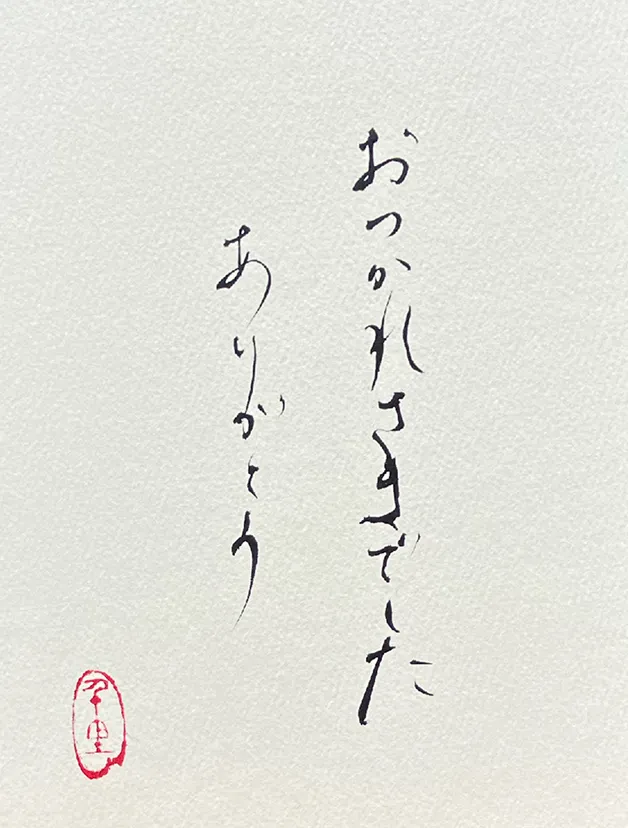 おつかれさまでした
ありがとう